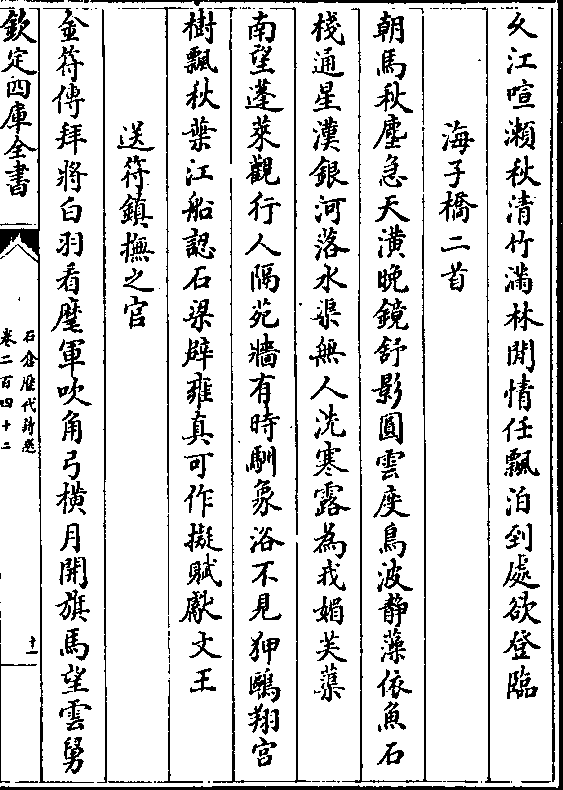 久江喧瀬秋清竹滿林閒情任飄泊到處欲登臨
海子橋二首
朝馬秋塵急天潢晚鏡舒影圓雲度鳥波靜藻依魚石
棧通星漢銀河落水渠無人洗寒露為我媚芙蕖
南望蓬萊觀行人隔苑牆有時馴象浴不見狎鷗翔宮
樹飄秋葉江船認石梁辟雍真可作擬賦獻文王
送符鎮撫之官
金符傳拜將白羽看麾軍吹角弓橫月開旗馬望雲舅
欽定四庫全書
石倉歴代詩選
卷二百四十二
十一